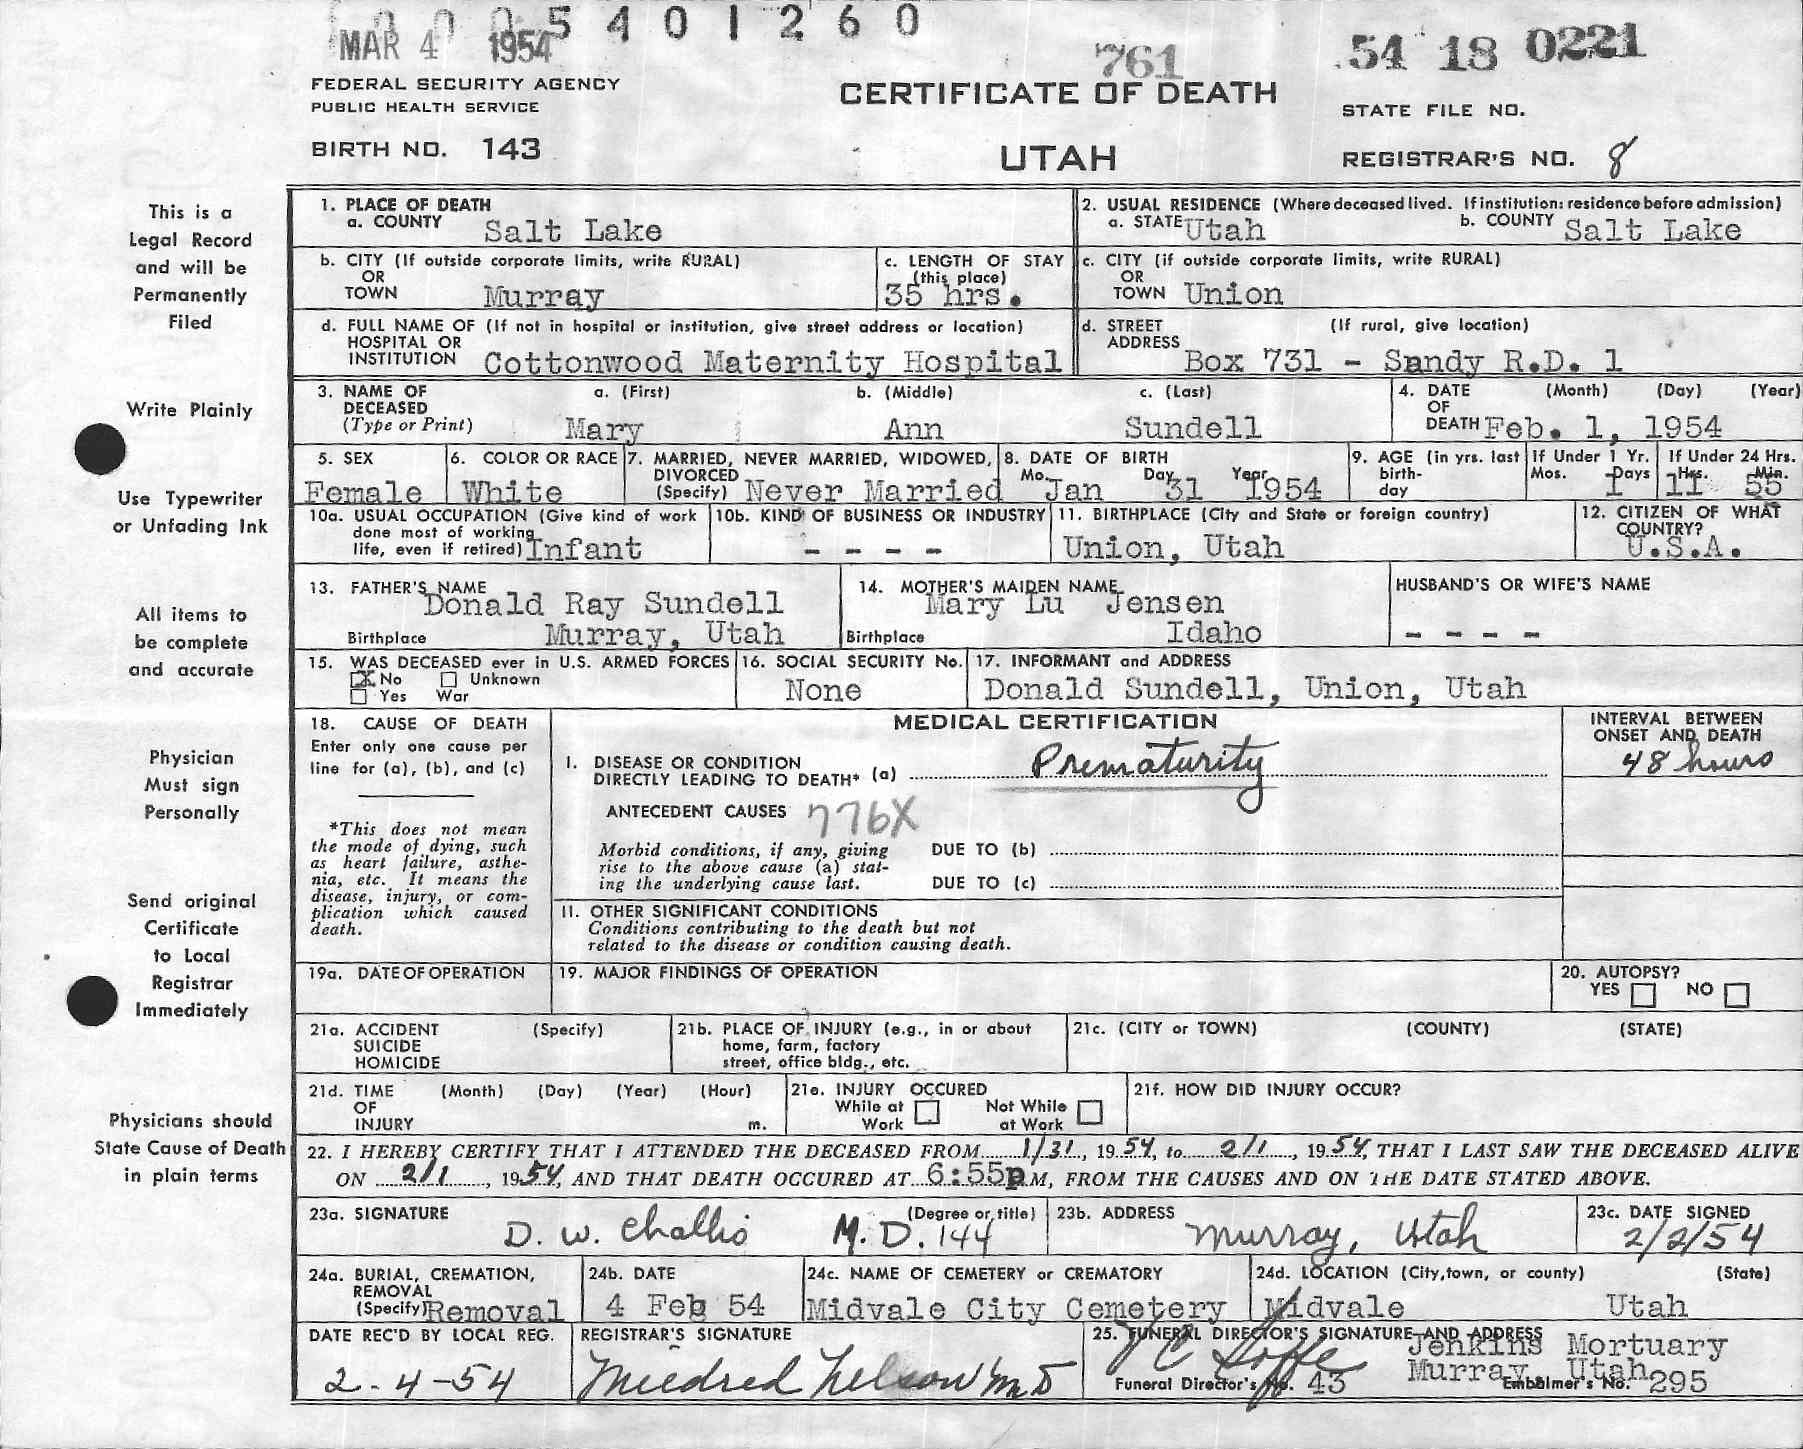 5 4 0 1 2 6 0
MAR 4 1954
761
54 18 0221
FEDERAL SECURITY AGENCY
PUBLIC HEALTH SERVICE
CERTIFICATE OF DEATH
STATE FILE NO.
BIRTH NO. 143
UTAH
REGISTRAR'S NO. 8
This is a
Legal Record
and will be
Permanently
Filed
Write Plainly
Use Typewriter
or Unfading Ink
All items to
be complete
and accurate
Physician
Must sign
Personally
Send original
Certificate
to Local
Registrar
Immediately
Physicians should
State Cause of Death
in plain terms
1. PLACE OF DEATH
a. COUNTY Salt Lake
2. USUAL RESIDENCE (Where deceased lived. If institution: residence before admission)
a. STATE Utah b. COUNTY Salt Lake
b. CITY (If outside corporate limits, write RURAL)
OR
TOWN Murray
c. LENGTH OF STAY
(this place)
35 hrs.
c. CITY (if outside corporate limits, write RURAL)
OR
TOWN Union
d. FULL NAME OF (If not in hospital or institution, give street address or location)
HOSPITAL OR
INSTITUTION Cottonwood Maternity Hospital
d. STREET (If rural, give location)
ADDRESS Box 731 - Sandy R.D. 1
3. NAME OF a. (First) b. (Middle) c. (Last)
DECEASED
(Type or Print) Mary Ann Sundell
4. DATE (Month) (Day) (Year)
OF
DEATH Feb. 1, 1954
5. SEX
Female
6. COLOR OR RACE
White
7. MARRIED, NEVER MARRIED, WIDOWED,
DIVORCED
(Specify) Never Married
8. DATE OF BIRTH
Mo. Day Year
Jan 31 1954
9. AGE (in yrs. last
birth-
day
If Under 1 Yr.
Mos. Days
1
If Under 24 Hrs.
Hrs. Min.
11 55
10a. USUAL OCCUPATION (Give kind of work
done most of working
life, even if retired) Infant
10b. KIND OF BUSINESS OR INDUSTRY
- - - -
11. BIRTHPLACE (City and State or foreign country)
Union, Utah
12. CITIZEN OF WHAT
COUNTRY?
U.S.A.
13. FATHER'S NAME
Donald Ray Sundell
Birthplace Murray, Utah
14. MOTHER'S MAIDEN NAME
Mary Lu Jensen
Birthplace Idaho
HUSBAND'S OR WIFE'S NAME
- - - -
15. WAS DECEASED ever in U.S. ARMED FORCES
X No Unknown
Yes War
16. SOCIAL SECURITY No.
None
17. INFORMANT and ADDRESS
Donald Sundell, Union, Utah
18. CAUSE OF DEATH
Enter only one cause per
line for (a), (b), and (c)
*This does not mean
the mode of dying, such
as heart failure, asthe-
nia, etc. It means the
disease, injury, or com-
plication which caused
death.
MEDICAL CERTIFICATION
I. DISEASE OR CONDITION
DIRECTLY LEADING TO DEATH* (a) Prematurity
ANTECEDENT CAUSES 776X
Morbid conditions, if any, giving
rise to the above cause (a) stat-
ing the underlying cause last.
DUE TO (b)
DUE TO (c)
II. OTHER SIGNIFICANT CONDITIONS
Conditions contributing to the death but not
related to the disease or condition causing death.
INTERVAL BETWEEN
ONSET AND DEATH
48 hours
19a. DATE OF OPERATION
19. MAJOR FINDINGS OF OPERATION
20. AUTOPSY?
YES NO
21a. ACCIDENT (Specify)
SUICIDE
HOMICIDE
21b. PLACE OF INJURY (e.g., in or about
home, farm, factory
street, office bldg., etc.
21c. (CITY or TOWN) (COUNTY) (STATE)
21d. TIME (Month) (Day) (Year) (Hour)
OF
INJURY m.
21e. INJURY OCCURED
While at Not While
Work at Work
21f. HOW DID INJURY OCCUR?
22. I HEREBY CERTIFY THAT I ATTENDED THE DECEASED FROM 1/31, 1954, to 2/1, 1954, THAT I LAST SAW THE DECEASED ALIVE
ON 2/1, 1954, AND THAT DEATH OCCURED AT 6:55P M, FROM THE CAUSES AND ON THE DATE STATED ABOVE.
23a. SIGNATURE (Degree or title)
D. W. Challis M.D. 144
23b. ADDRESS
Murray, Utah
23c. DATE SIGNED
2/2/54
24a. BURIAL, CREMATION,
REMOVAL
(Specify) Removal
24b. DATE
4 Feb 54
24c. NAME OF CEMETERY or CREMATORY
Midvale City Cemetery
24d. LOCATION (City, town, or county) (State)
Midvale Utah
DATE REC'D BY LOCAL REG.
2-4-54
REGISTRAR'S SIGNATURE
Mildred Nelson M D
25. FUNERAL DIRECTOR'S SIGNATURE AND ADDRESS
Jenkins Mortuary
Murray, Utah
Funeral Director's No. 43 Embalmer's No. 295